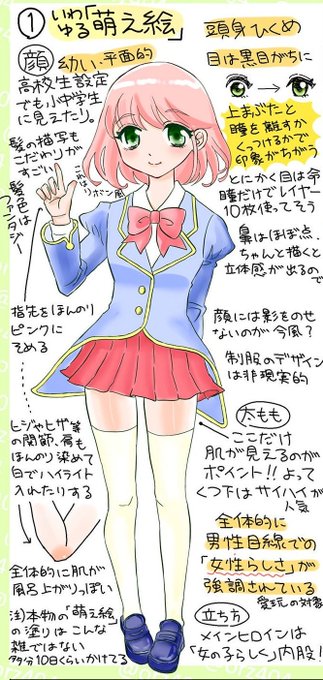 ① いわゆる「萌え絵」
頭身ひくめ
顔 幼い・平面的
高校生設定
でも小中学生
に見えたり。
目は黒目がちに
上まぶたと
瞳を離すか
くっつけるかで
印象がちがう
髪の描写も
こだわりが
すごい
髪色は
ファンタジー
リボン風
とにかく目は命
瞳だけでレイヤー
10枚使ってそう
鼻はほぼ点、
ちゃんと描くと
立体感が出るので
指先をほんのり
ピンクに
そめる
顔には影をの
せないのが今風?
制服のデザイン
は非現実的
太もも
ここだけ
肌が見えるのが
ポイント!!よって
くつ下はサイハイが
人気
ヒジやヒザ等
の関節、肩も
ほんのり染めて
白でハイライト
入れたりする
全体的に
男性目線での
「女性らしさ」が
強調されている
愛玩の対象
全体的に肌が
風呂上がりっぽい
立ち方
メインヒロインは
「女の子らしく」内股!
注)本物の「萌え絵」
の塗りはこんな
雑ではない
多分10日くらいかけてる